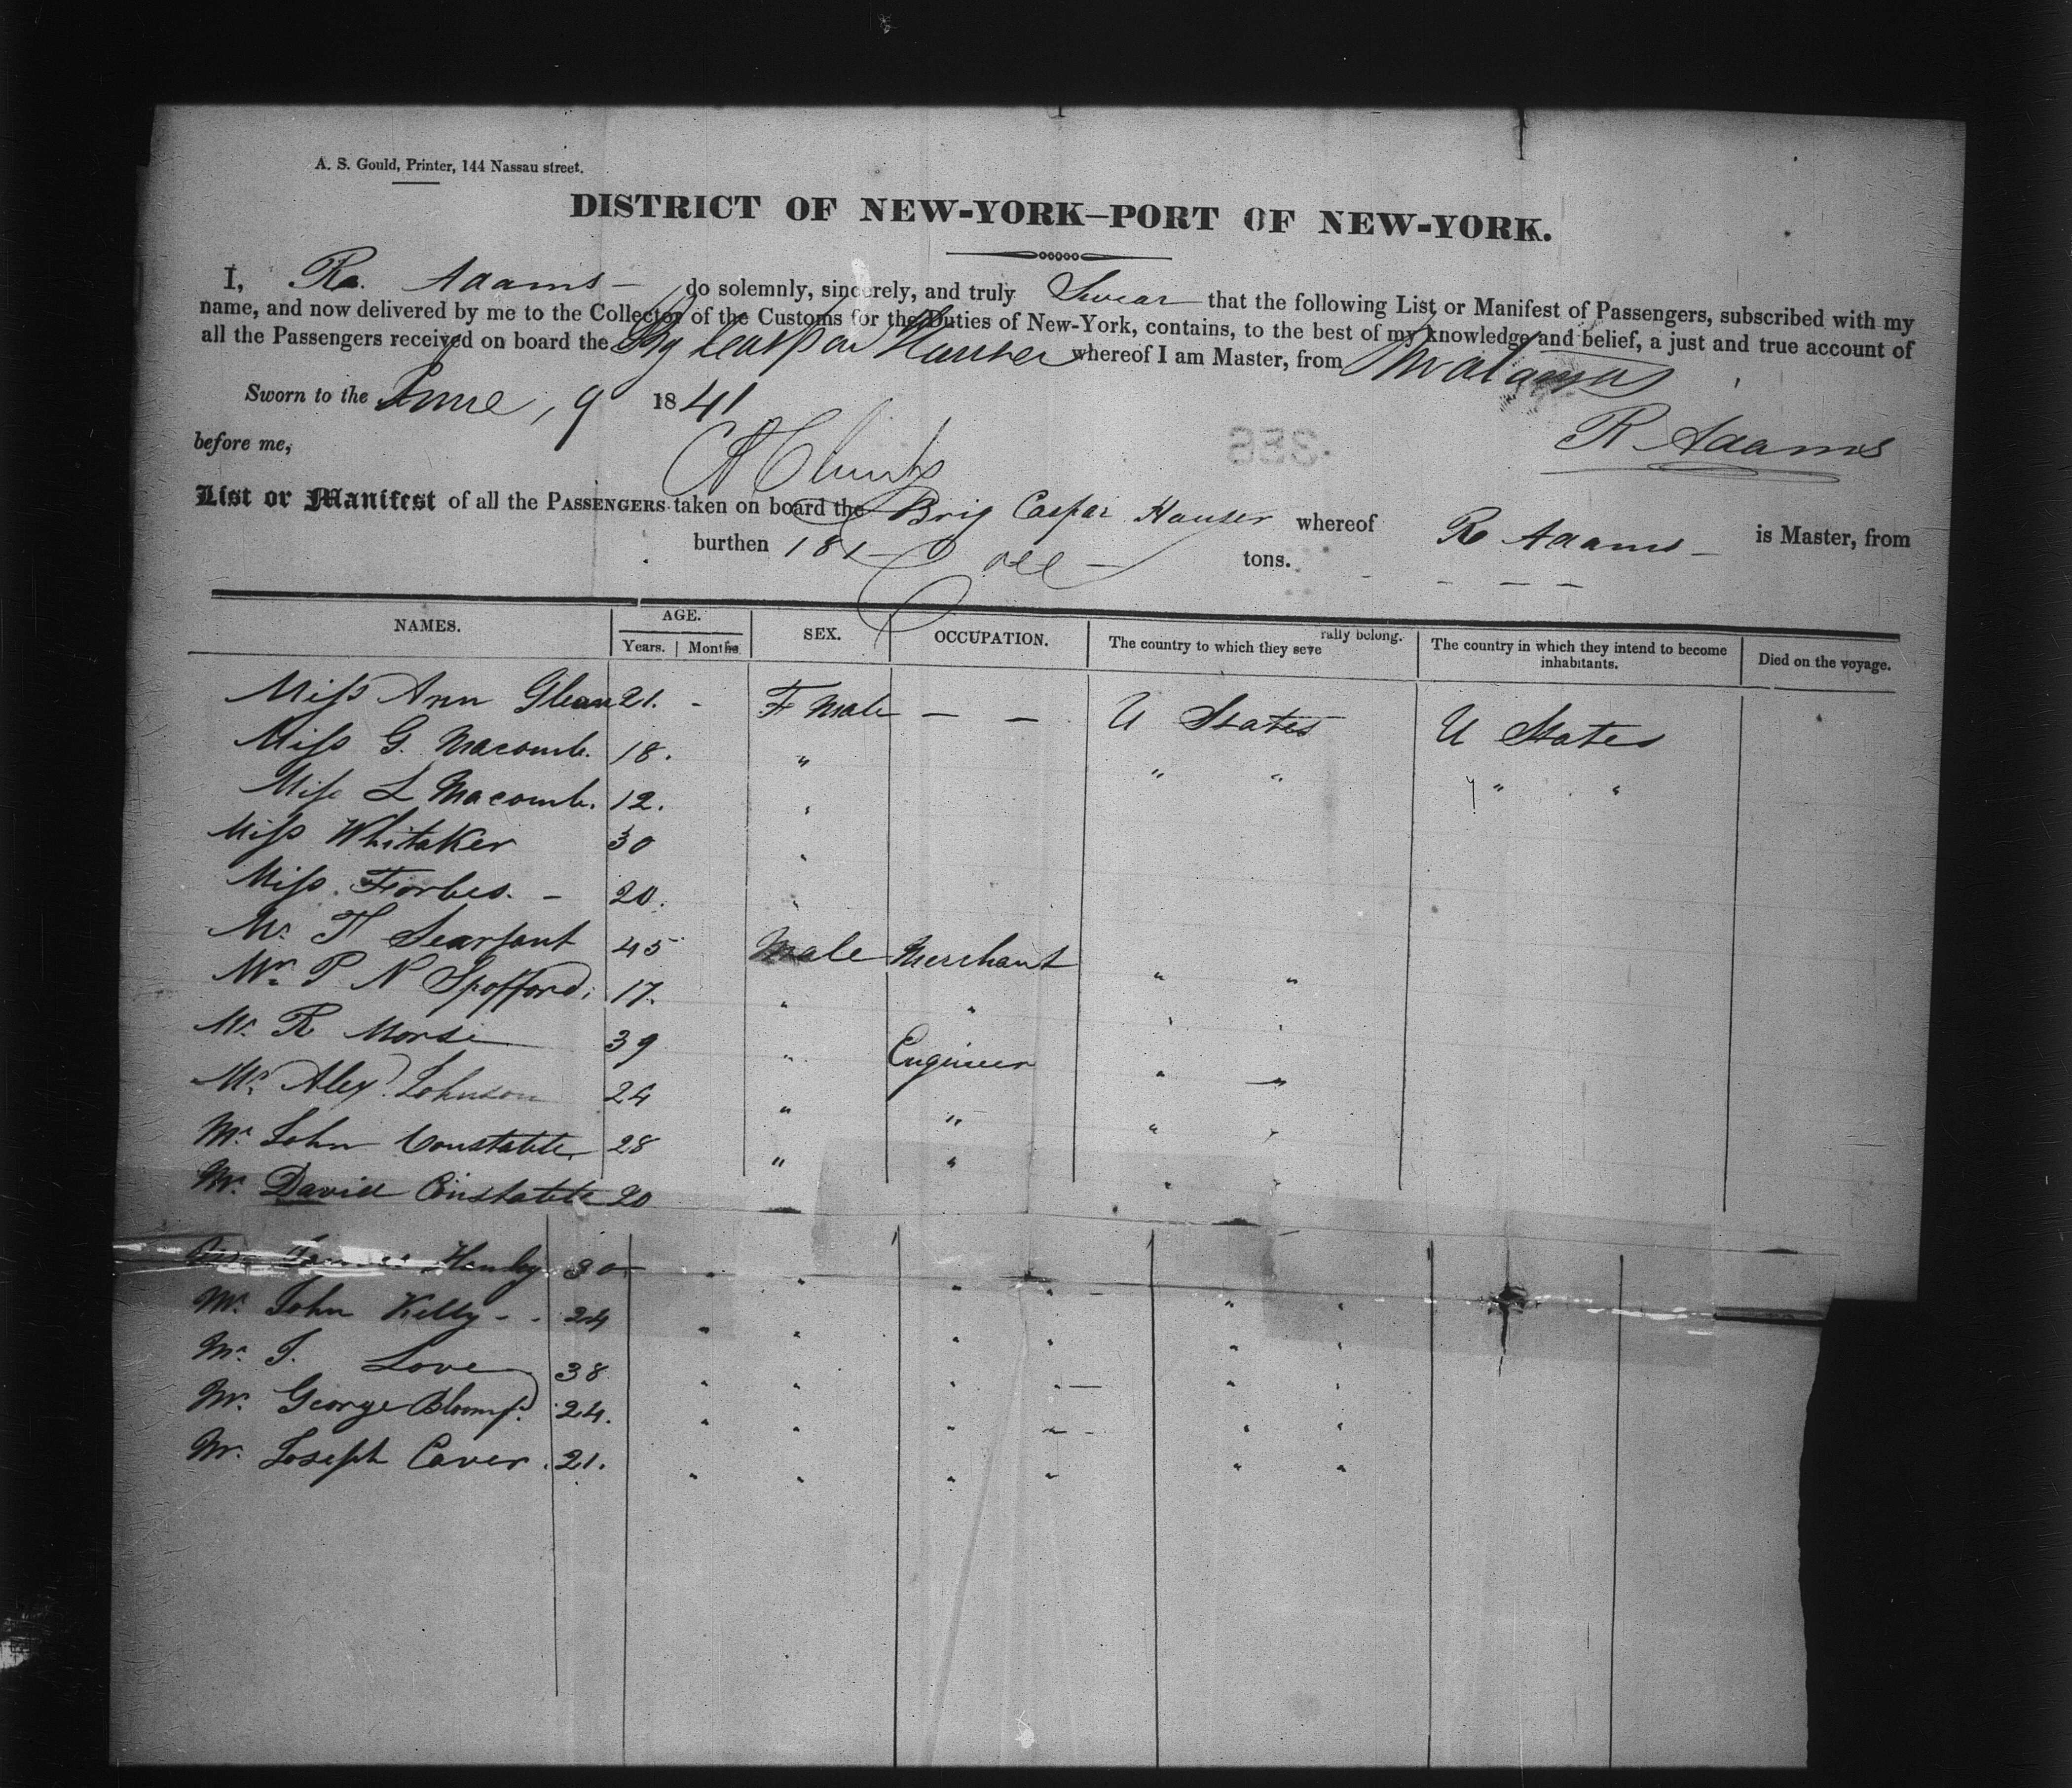 A. S. Gould, Printer, 144 Nassau street.
DISTRICT OF NEW-YORK—PORT OF NEW-YORK.
I, Ro. Adams — do solemnly, sincerely, and truly Swear that the following List or Manifest of Passengers, subscribed with my
name, and now delivered by me to the Collector of the Customs for the Duties of New-York, contains, to the best of my knowledge and belief, a just and true account of
all the Passengers received on board the Brg Caspar Hauser whereof I am Master, from Matanzas
Sworn to the June, 9 1841
R. Adams
before me,
List or Manifest of all the PASSENGERS taken on board the Brig Caspar Hauser whereof Ro Adams — is Master, from
burthen 181 tons.
NAMES. AGE. SEX. OCCUPATION. The country to which they seve rally belong. The country in which they intend to become inhabitants. Died on the voyage.
Years. Months
Miss Ann 21. - F Male — — U States U States
Miss G. Macomb. 18. " " " " "
Miss L Macomb. 12. "
Miss Whitaker 30 "
Miss Forbes. - 20. "
Mr. 45 Male Merchant " "
Mr. P N Spofford. 17. " " " "
Mr. R Morse 39 " Engineer " "
Mr. Alex. Johnson 24 " " " "
Mr. John 28 " " " "
Mr. David 20
Henley 30 " " " " " "
Mr. John Kelly - - 24 " " " " " "
Mr. J. Love 38 " " " " " "
Mr. George Bloomfd. 24. " " " " " "
Mr. Joseph Caver. 21. " " " " " "